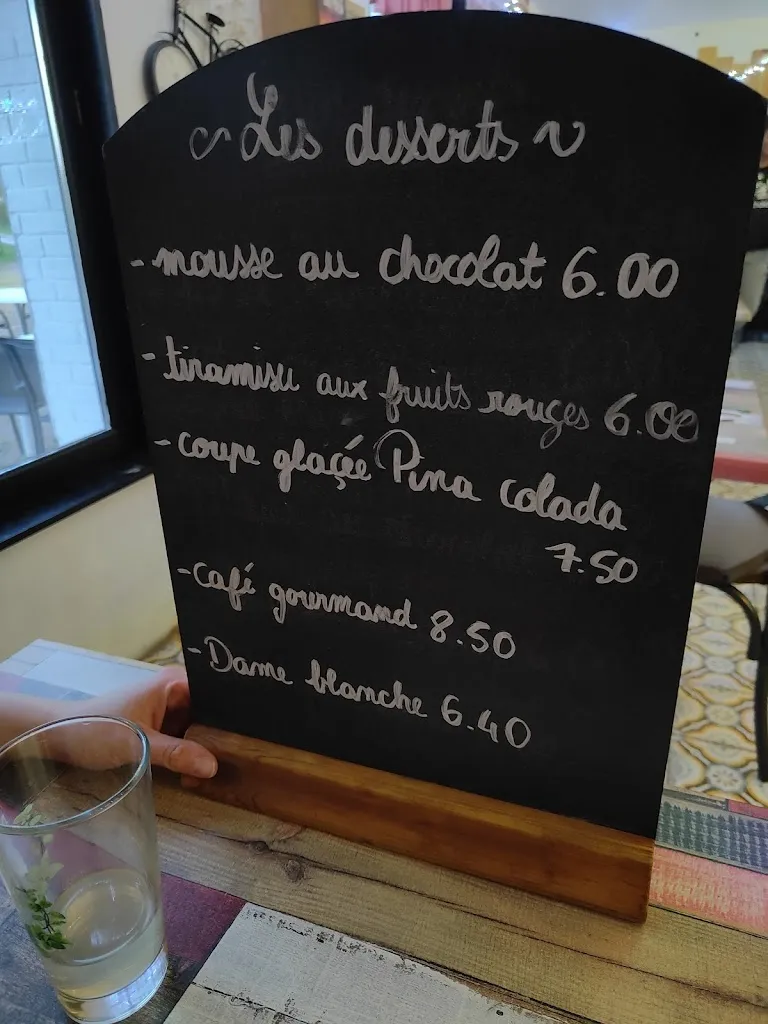 ~ Les desserts ~
- mousse au chocolat 6.00
- tiramisu aux fruits rouges 6.00
- coupe glaçée Pina colada
7.50
- café gourmand 8.50
- Dame blanche 6.40